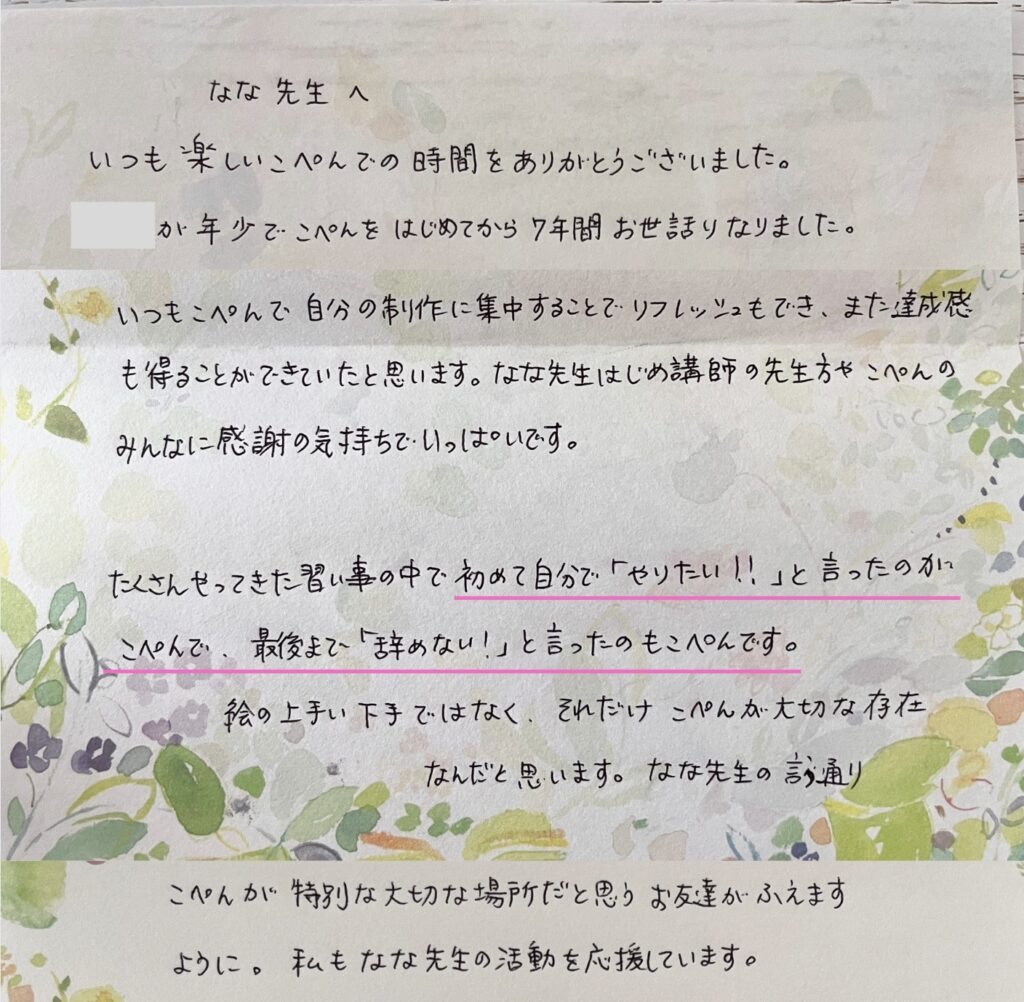 なな先生へ
いつも楽しいこぺんでの時間をありがとうございました。
が年少でこぺんをはじめてから7年間お世話りなりました。
いつもこぺんで自分の制作に集中することでリフレッシュもでき、また達成感
も得ることができていたと思います。なな先生はじめ講師の先生方やこぺんの
みんなに感謝の気持ちでいっぱいです。
たくさんやってきた習い事の中で初めて自分で「やりたい!!」と言ったのが
こぺんで、最後まで「辞めない!」と言ったのもこぺんです。
絵の上手い下手ではなく、それだけこぺんが大切な存在
なんだと思います。なな先生の言う通り
こぺんが特別な大切な場所だと思うお友達がふえます
ように。私もなな先生の活動を応援しています。